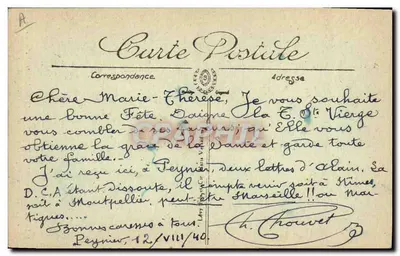 A
Carte Postale
Correspondance
Adresse
Chère Marie-Thérèse, Je vous souhaite
une bonne Fête. Daigne la T. Ste Vierge
vous combler de ses Elle vous
obtienne la grâce de la Santé et garde toute
votre famille.
J'ai reçu ici, à Peynier, deux lettres d'Alain. Sa
D.C.A étant dissoute, il compte venir soit à Nîmes,
soit à Montpellier, peut être Marseille!! ou Mar-
tigues....
Bonnes caresses à tous.
Peynier, 12/VIII/40.
Chouvet